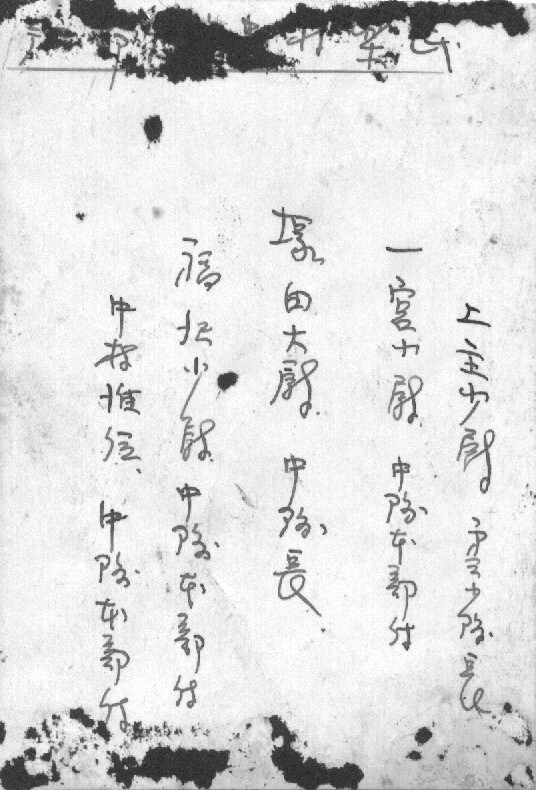 上主少尉 小隊長
一宮少尉 中隊本部付
塚田大尉 中隊長
福地少尉 中隊本部付
中村准尉 中隊本部付